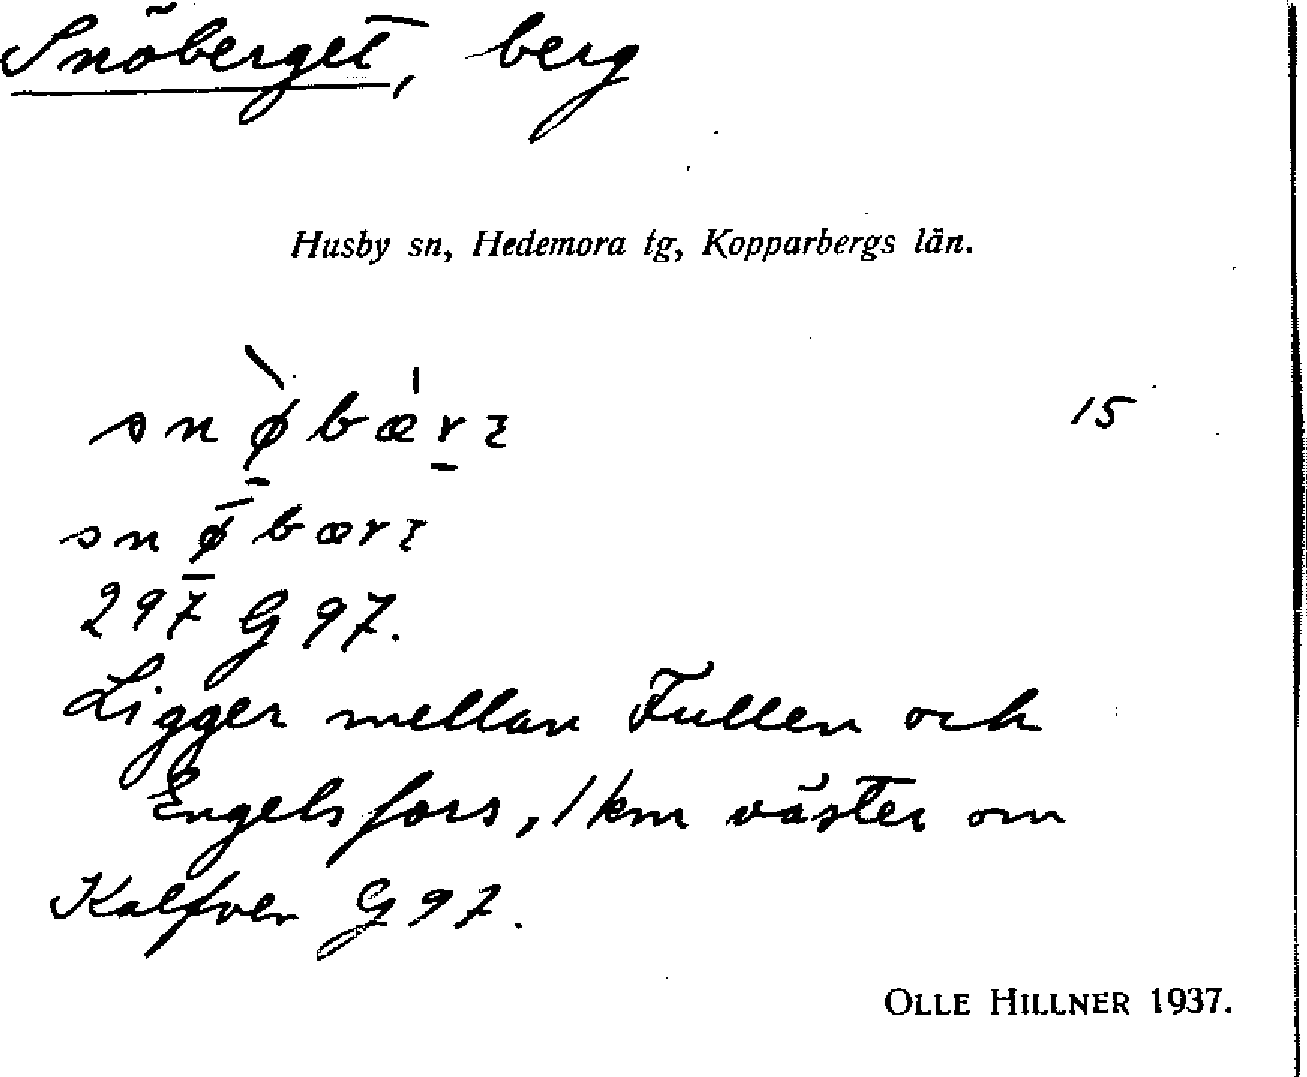 Snöberget, berg
Husby sn, Hedemora tg, Kopparbergs län.
snø̀bæ̍r̠ɪ 15
snø̄bærɪ
297 G 97.
Ligger mellan Fullen och
Engelsfors, 1 km väster om
Kalfven G 97.
OLLE HILLNER 1937.